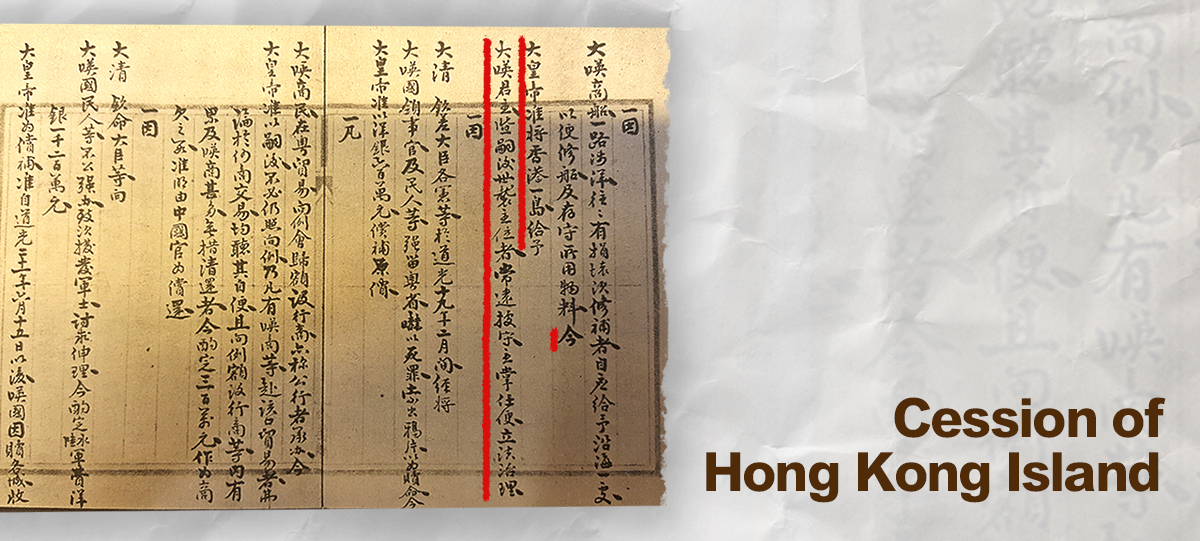 一因
大暎商船一路涉洋往往有損壞須修補者自應給予沿海一處
以便修船及存守所用物料今
大皇帝准將香港一島給予
大暎君主暨嗣後世襲主位者常遠據守主掌任便立法治理
一因
大清 欽差大臣各憲等於道光十九年二月間經將
大暎國領事官及民人等強留粵省嚇以死罪索出鴉片為贖命今
大皇帝准以洋銀六百萬元償補原價
一凡
大暎商民在粵貿易向例全歸額設行商亦稱公行者承辦今
大皇帝准以嗣後不必仍照向例乃凡有暎商等赴該口貿易者勿
論與何商交易均聽其自便且向例額設行商等內有
累及暎商甚多無措清還者今酌定三百萬元作為商
欠之數准明由中國官為償還
一因
大清 欽命大臣等向
大暎國民人等不公強辦致須撥發軍士討求伸理今酌定水陸軍費洋
銀一千二百萬元
大皇帝准為償補准自道光二十一年六月十五日以後暎國因贖各城收
Cession of
Hong Kong Island